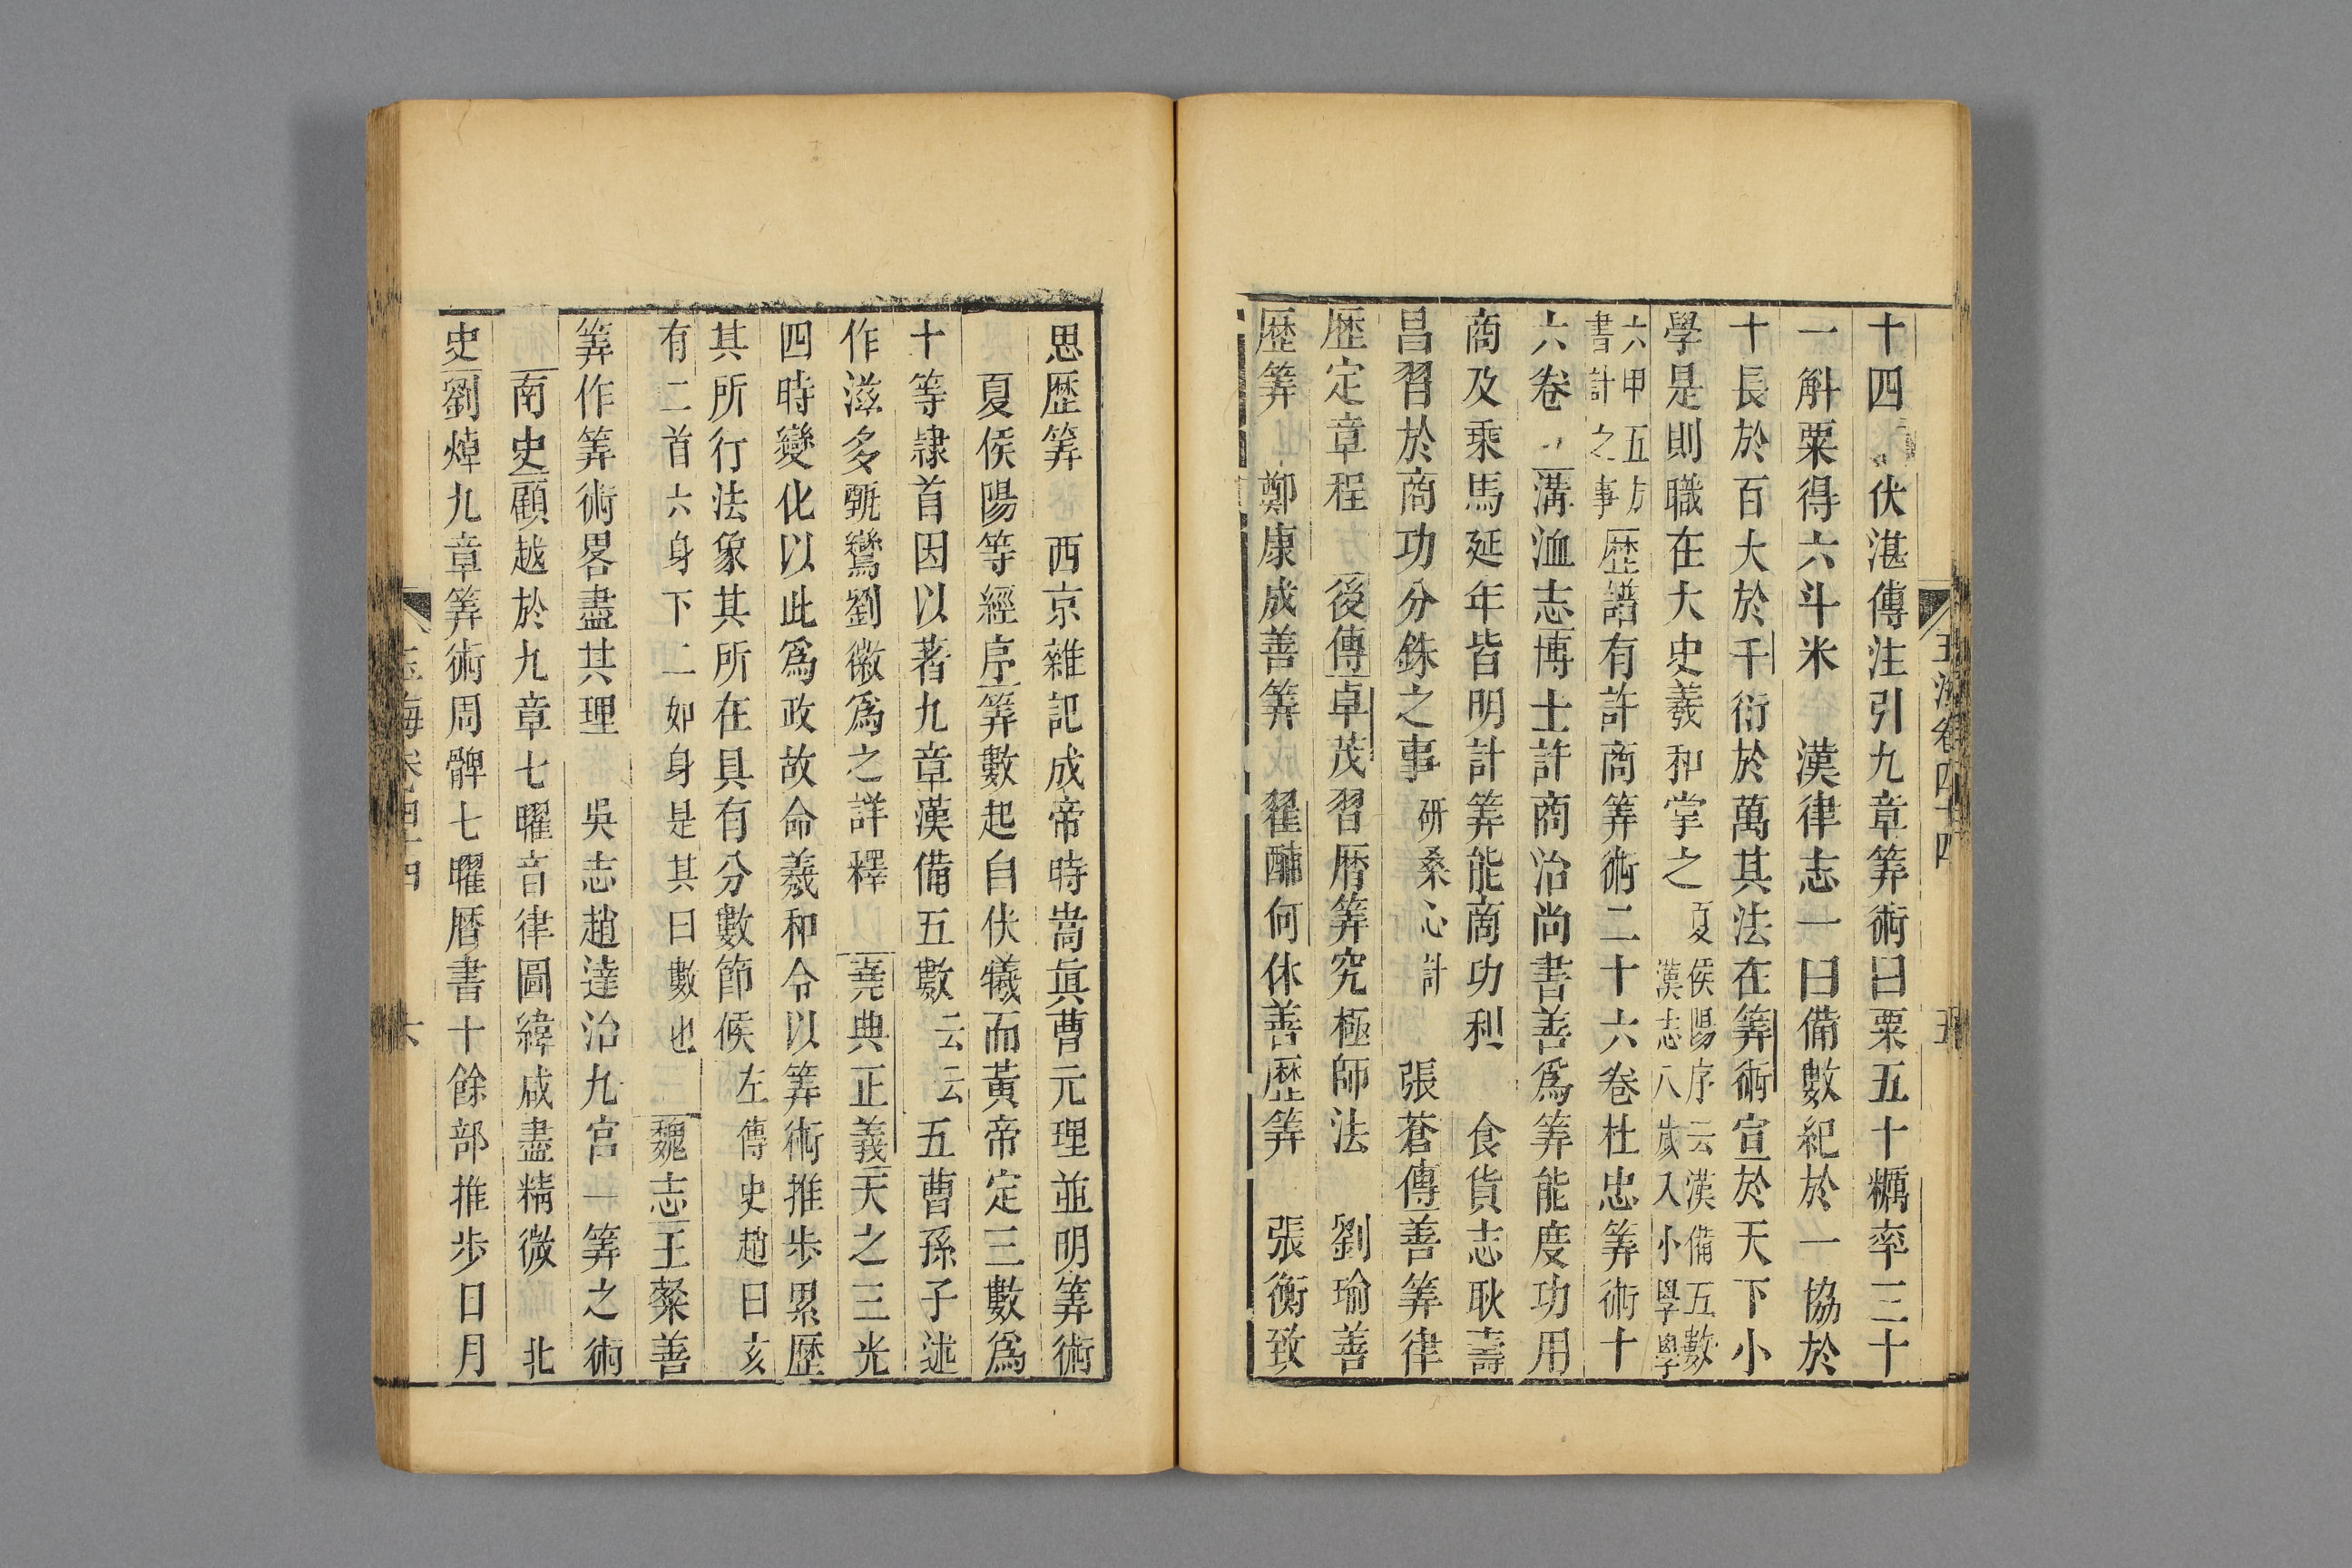 玉海卷四十四
五
十四伏湛傳注引九章筭術曰粟五十糲率三十
一斛粟得六斗米 漢律志一曰備數紀於一協於
十長於百大於千衍於萬其法在筭術宣於天下小
學是則職在大史羲和掌之夏侯陽序云漢備五數漢志八歲入小學學
六甲五方書計之事歷譜有許商筭術二十六卷杜忠筭術十
六卷 溝洫志博士許商治尚書善爲筭能度功用
商及乘馬延年皆明計筭能商功利 食貨志耿壽
昌習於商功分銖之事研桑心計 張蒼傳善筭律
歷定章程 後傳卓茂習暦筭究極師法 劉瑜善
歷筭 鄭康成善筭 翟酺何休善歷筭 張衡致
思歷筭 西京雜記成帝時嵩眞曹元理並明筭術
夏侯陽等經序筭數起自伏犧而黃帝定三數爲
十等隷首因以著九章漢備五數云云五曹孫子述
作滋多甄鸞劉徽爲之詳釋 堯典正義天之三光
四時變化以此爲政故命羲和令以筭術推歩累歷
其所行法象其所在具有分數節候 左傳史趙曰亥
有二首六身下二如身是其日數也 魏志王粲善
筭作筭術畧盡其理 吳志趙達治九宮一筭之術
南史顧越於九章七曜音律圖緯咸盡精微 北
史劉焯九章筭術周髀七曜暦書十餘部推歩日月
玉海卷四十四
六